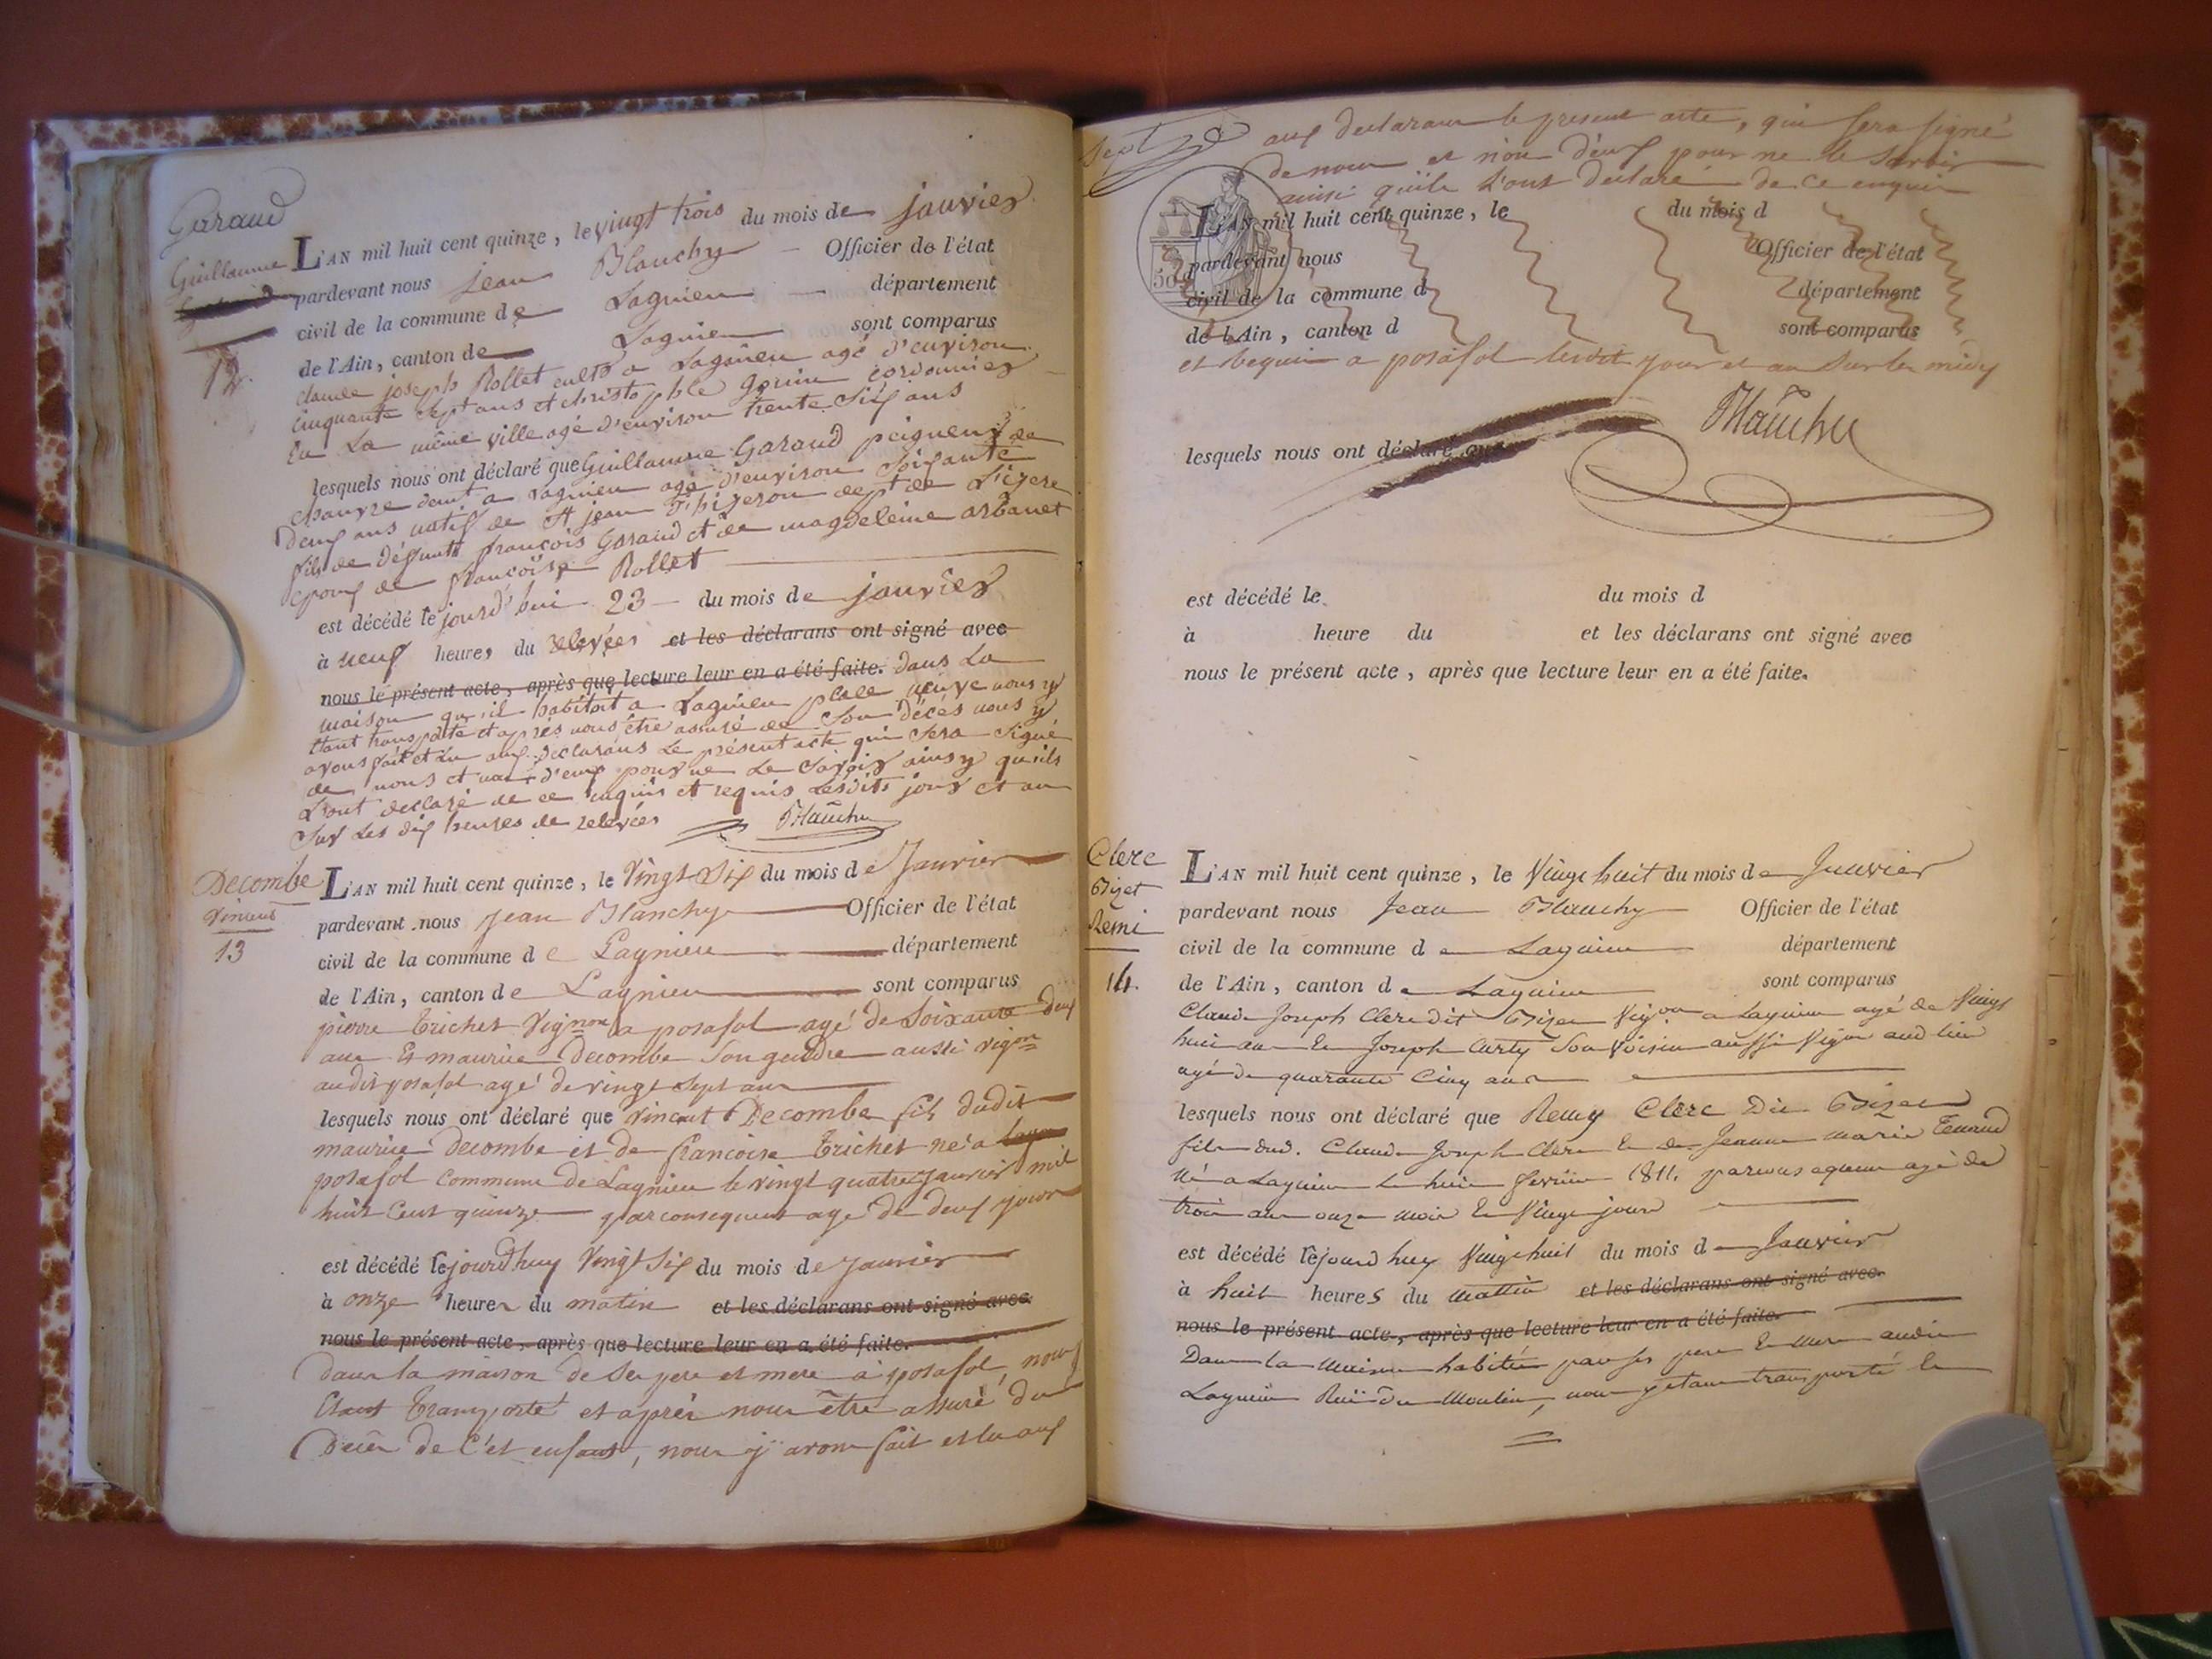 Garaud
Guillaume
12.
L'AN mil huit cent quinze, le vingt trois du mois de janvier
pardevant nous jean Blanchy Officier de l'état
civil de la commune de Lagnieu département
de l'Ain, canton de Lagnieu sont comparus
claude joseph Rollet cultr a Lagnieu agé d'environ
cinquante sept ans et christophle gorin cordonnier
En La même ville agé d'environ trente six ans
lesquels nous ont déclaré que Guillaume Garaud peigneur de
chanvre demt a Lagnieu agé d'environ soixante
deux ans natif de St jean dept de L'izere
fils de défunts françois Garaud et de magdeleine arbanet
epoux de françoise Rollet
est décédé lejourd'hui 23 du mois de janvier
à neuf heures du relevées et les déclarans ont signé avec
nous le présent acte, après que lecture leur en a été faite. dans La
maison qu'il habitoit a Lagnieu place neuve nous y
etant transporté et après nous être assuré de son décés nous y
avons fait et Lu aux déclarans Le présent acte qui sera signé
de nous et non d'eux pour ne Le savoir ainsy qu'ils
L'ont declaré de ce enquis et requis Lesdits jour et an
sur Les dix heures de relevées Blanchy
Decombe
Vincent
13
L'AN mil huit cent quinze, le Vingt Six du mois de Janvier
pardevant nous Jean Blanchy Officier de l'état
civil de la commune de Lagnieu département
de l'Ain, canton de Lagnieu sont comparus
pierre trichet Vignon a posafol agé de soixante deux
ans Et maurice Decombe son gendre aussi vignon
audit posafol agé de vingt sept ans
lesquels nous ont déclaré que Vincent Decombe fils dudit
maurice Decombe et de francoise trichet né a
posafol commune de Lagnieu le vingt quatre Janvier mil
huit cent quinze par consequent agé de deux jours
est décédé lejourdhuy Vingt Six du mois de janvier
à onze heures du matin et les déclarans ont signé avec
nous le présent acte, après que lecture leur en a été faite.
dans la maison de ses pere et mere à posafol, nous
Etant transporté et après nous être assuré du
Décès de c'et enfant, nous y avons fait et lu aux
Sept
aux declarans le present acte, qui sera signé
de nous et non d'eux pour ne le savoir
ainsi qu'ils l'ont declaré de ce enquis
L'AN mil huit cent quinze, le du mois d
pardevant nous Officier de l'état
civil de la commune d département
de l'Ain, canton d sont comparus
et requis a posafol lesdit jour et an sur les midy
Blanchy
lesquels nous ont déclaré que
est décédé le du mois d
à heure du et les déclarans ont signé avec
nous le présent acte, après que lecture leur en a été faite.
Clerc
Bizet
Remi
14.
L'AN mil huit cent quinze, le Vingt huit du mois de Janvier
pardevant nous Jean Blanchy Officier de l'état
civil de la commune de Lagnieu département
de l'Ain, canton de Lagnieu sont comparus
Claude Joseph Clerc dit Bizet Vignon a Lagnieu agé de Vingt
huit ans Et Joseph Curty son voisin aussi Vignon aud lieu
agé de quarante Cinq ans
lesquels nous ont déclaré que Remy Clerc Dit Bizet
fils dud. Claude Joseph Clerc Et de Jeanne marie Tenand
Né a Lagnieu le huit fevrier 1811. par consequent agé de
trois ans onze mois Et Vingt jours
est décédé lejourd huy Vingt huit du mois de Janvier
à huit heures du mattin et les déclarans ont signé avec
nous le présent acte, après que lecture leur en a été faite.
Dans la maison habitée par ses pere Et mere audit
Lagnieu Rue du Moulin, nous y etant transporté Et